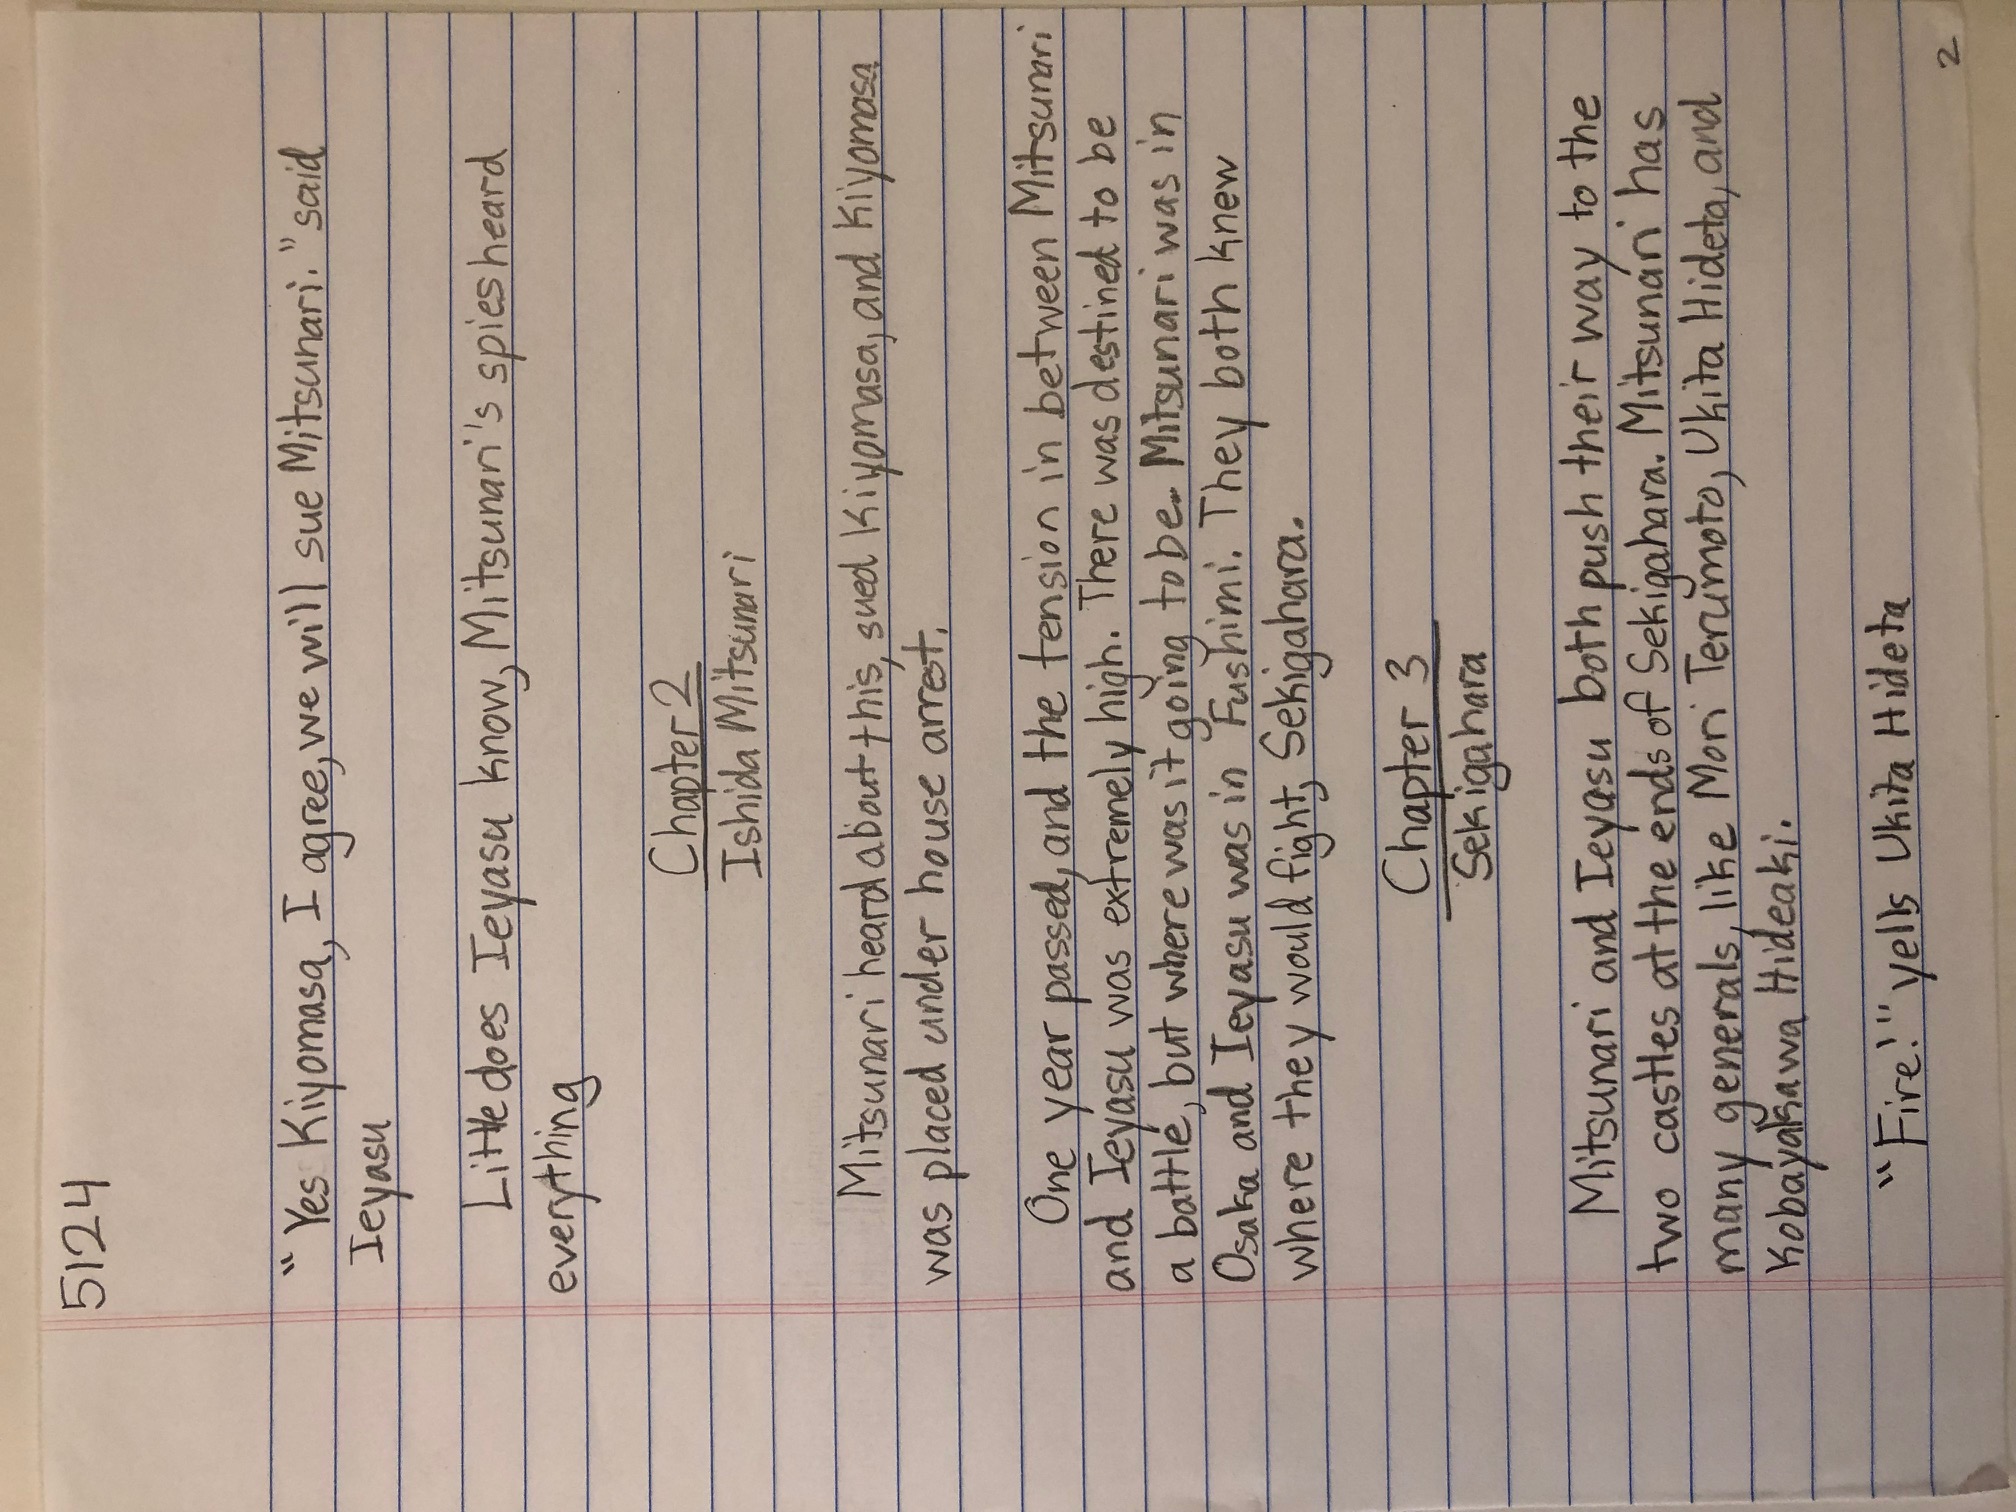 5124
"Yes Kiyomasa, I agree, we will sue Mitsunari." said
Ieyasu
Little does Ieyasu know, Mitsunari's spies heard
everything
Chapter 2
Ishida Mitsunari
Mitsunari heard about this, sued Kiyomasa, and Kiyomasa
was placed under house arrest.
One year passed, and the tension in between Mitsunari
and Ieyasu was extremely high. There was destined to be
a battle, but where was it going to be. Mitsunari was in
Osaka and Ieyasu was in Fushimi. They both knew
where they would fight, Sekigahara.
Chapter 3
Sekigahara
Mitsunari and Ieyasu both push their way to the
two castles at the ends of Sekigahara. Mitsunari has
many generals, like Mori Terumoto, Ukita Hideta, and
Kobayakawa Hideaki.
"Fire!" yells Ukita Hideta
2